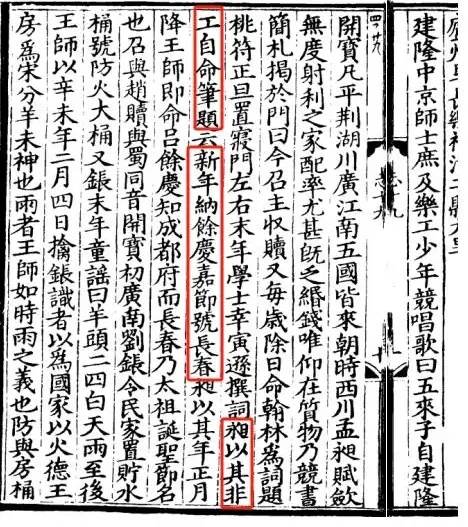 建隆中京師士庶及樂工少年競唱歌曰五來子自建隆
開寶凡平荆湖川廣江南五國皆來朝時西川孟昶賦斂
無度射利之家配率尤甚既乏緡錢唯仰在質物乃競書
簡札揭於門曰今召主收贖又每歲除日命翰林爲詞題
桃符正旦置寢門左右末年學士幸寅遜撰詞昶以其非
工自命筆題云新年納餘慶嘉節號長春昶以其年正月
降王師即命吕餘慶知成都府而長春乃太祖誕聖節名
也召與趙贖與蜀同音開寶初廣南劉鋹令民家置貯水
桶號防火大桶又鋹末年童謡曰羊頭二四白天雨至後
王師以辛未年二月四日擒鋹識者以爲國家以火德王
房爲宋分羊未神也雨者王師如時雨之義也防與房桶